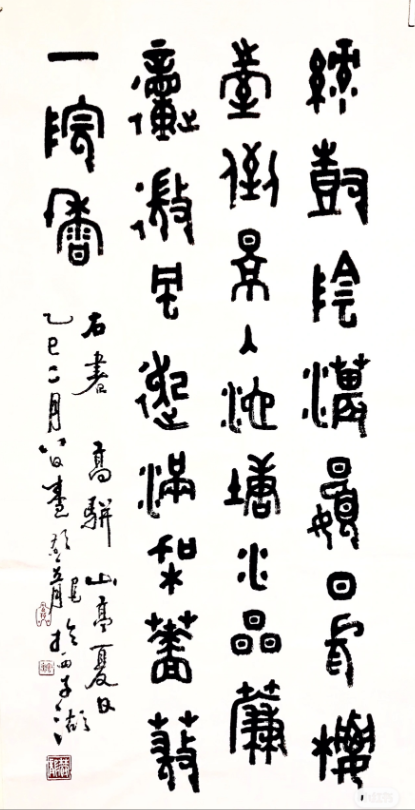 綠樹陰濃夏日長樓
臺倒景入池塘水晶簾
動微風起滿架薔薇
一院香
右書 高駢 山亭夏日
乙巳二月 於西子湖